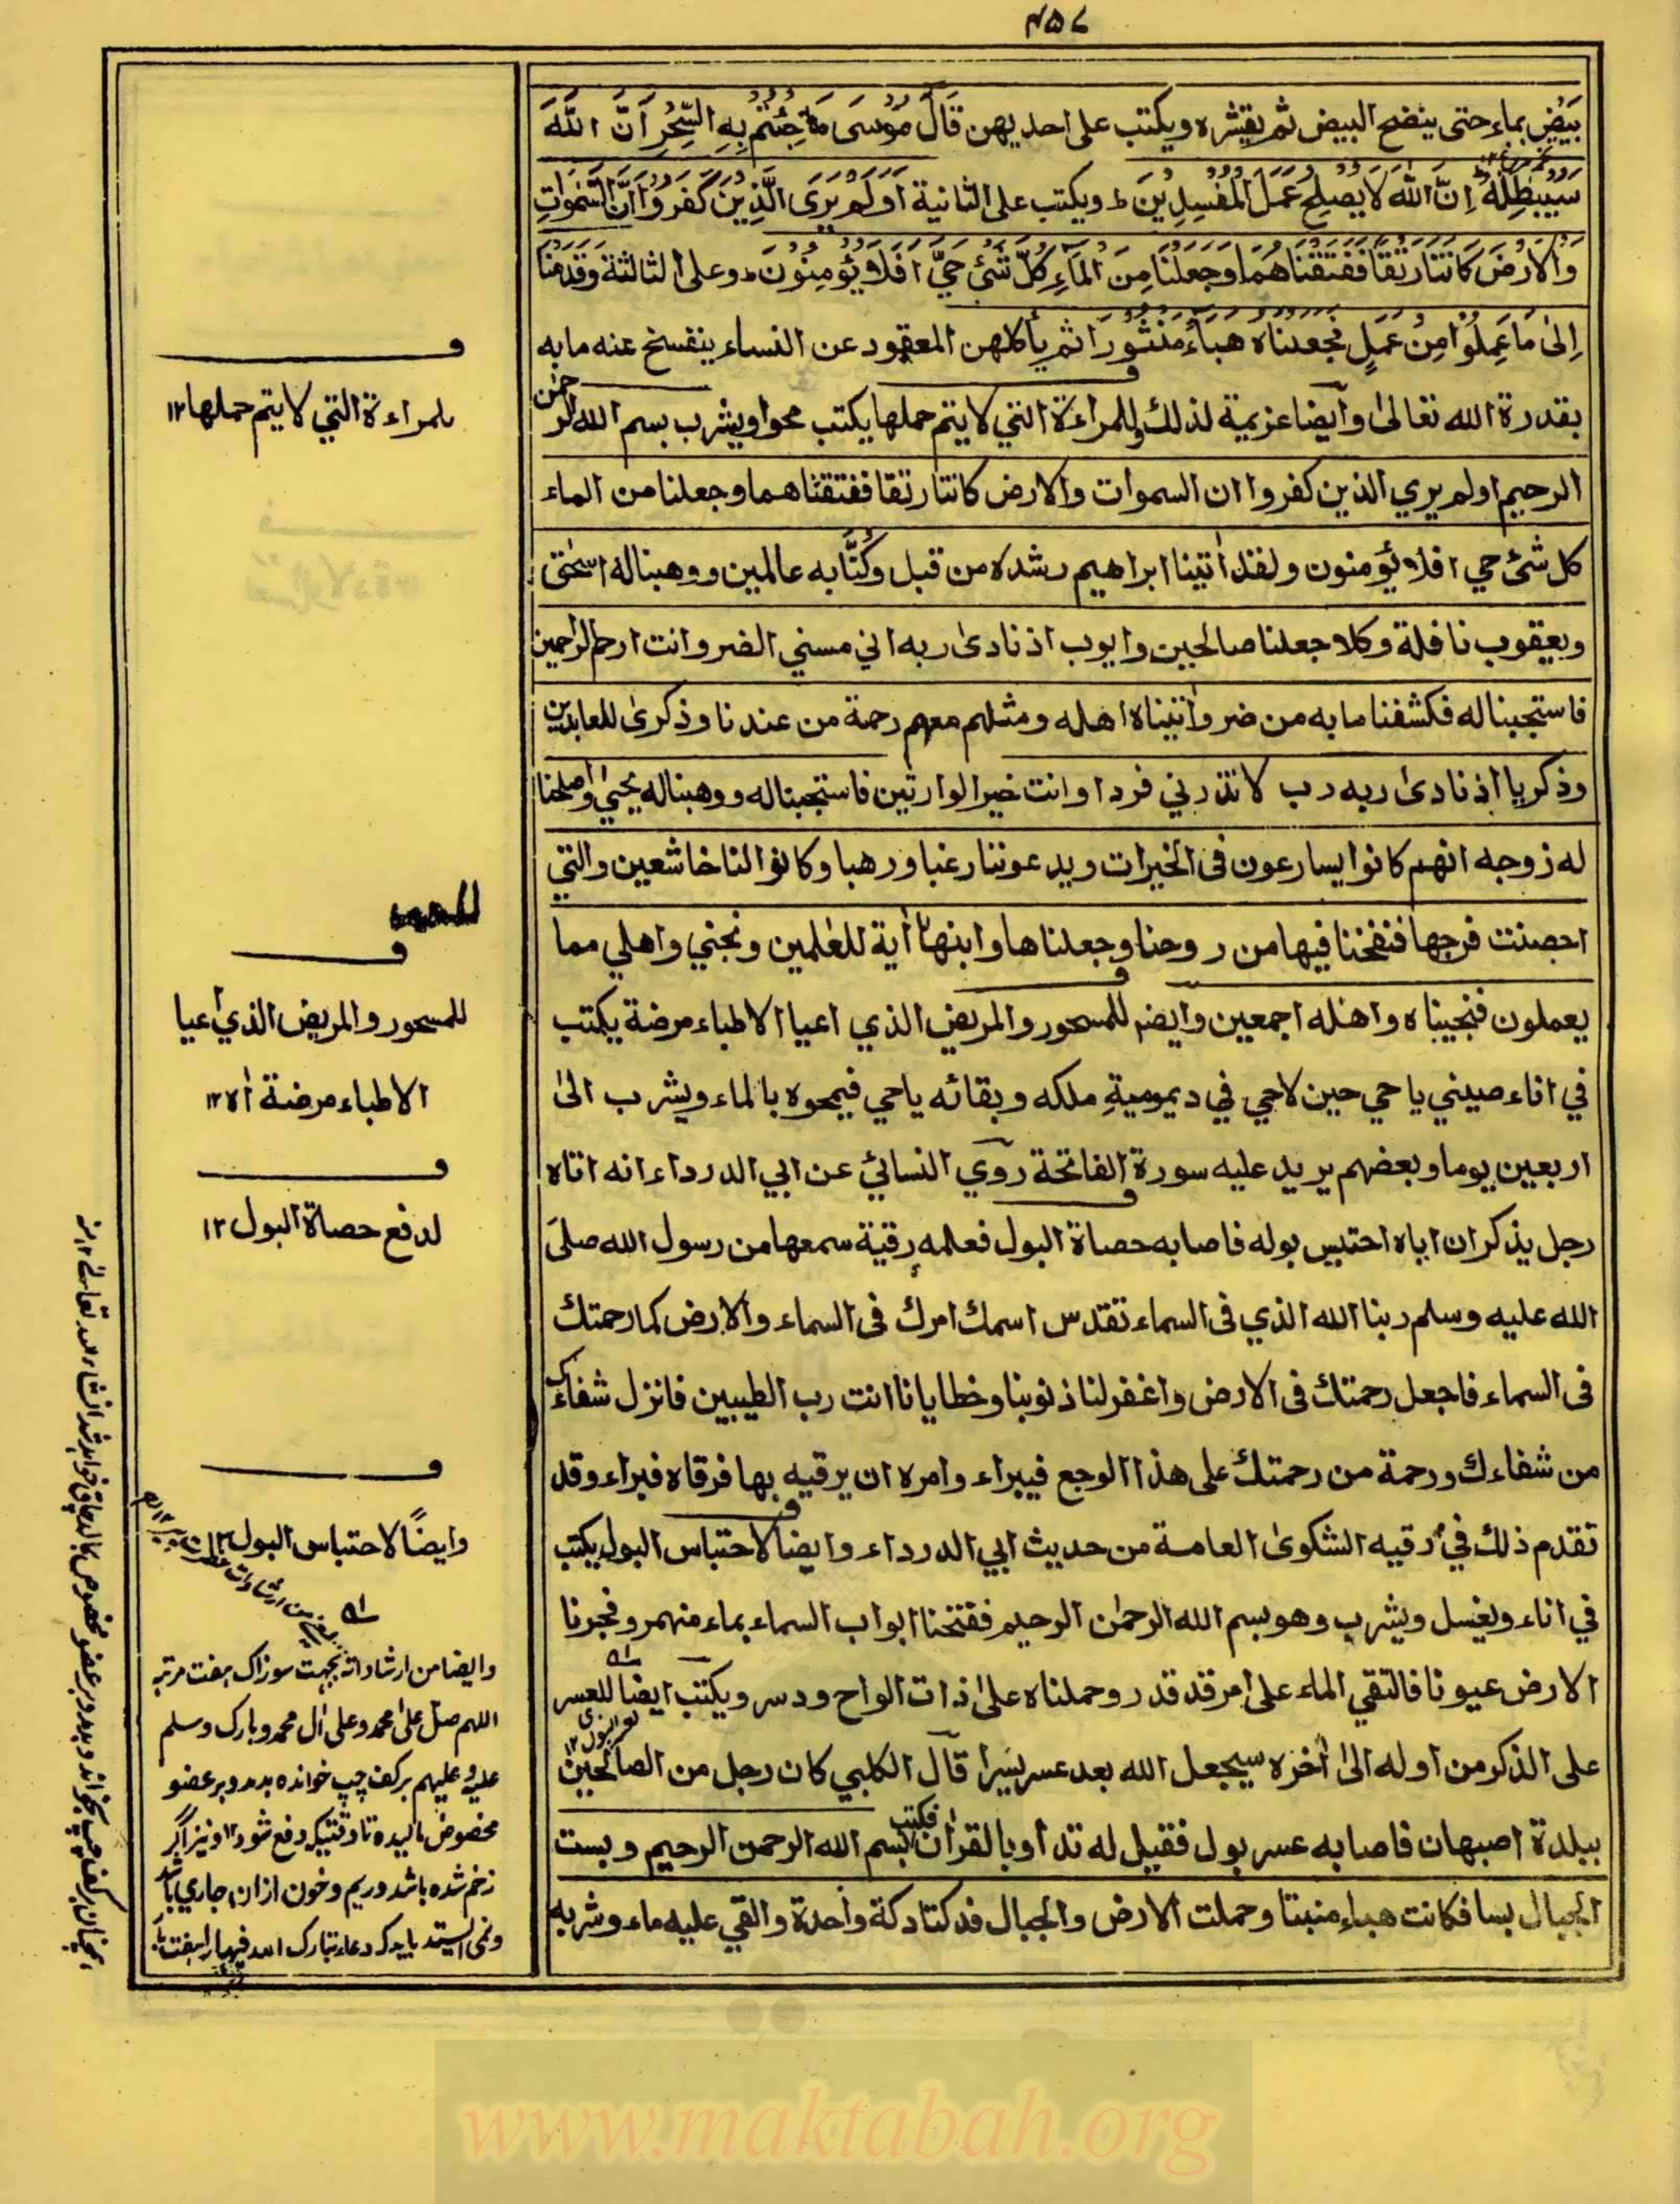 ٤٥٧
بَيْضٍ بماء حتى ينضج البيض ثم يقشره ويكتب على احديهن قَالَ مُوْسَى مَا جِئْتُمْ بِهِ السِّحْرُ اَنَّ اللّٰهَ
سَيُبْطِلُهٗ اِنَّ اللّٰهَ لَا يُصْلِحُ عَمَلَ الْمُفْسِدِيْنَ ط ويكتب على الثانية اَوَلَمْ يَرَى الَّذِيْنَ كَفَرُوْا اَنَّ السَّمٰوَاتِ
وَالْاَرْضَ كَانَتَا رَتْقًا فَفَتَقْنَاهُمَا وَجَعَلْنَا مِنَ الْمَاءِ كُلَّ شَيْءٍ حَيٍّ اَفَلَا يُؤْمِنُوْنَ ط وعلى الثالثة وَقَدِمْنَا
اِلٰى مَا عَمِلُوْا مِنْ عَمَلٍ فَجَعَلْنَاهُ هَبَاءً مَنْثُوْرًا ثم يأكلهن المعقود عن النساء ينفسخ عنه ما به
بقدرة الله تعالىٰ وايضا عزيمة لذلك وللمراءة التي لا يتم حملها يكتب محوا ويشرب بسم الله الرحمٰن
الرحيم اولم يري الذين كفروا ان السموات والارض كانتا رتقا ففتقناهما وجعلنا من الماء
كل شئ حي افلا يؤمنون ولقد اٰتينا ابراهيم رشده من قبل وكُنَّا به عالمين ووهبنا له اسحٰق
ويعقوب نافلة وكلا جعلنا صالحين وايوب اذ نادىٰ ربه اني مسني الضر وانت ارحم الراحمين
فاستجبنا له فكشفنا ما به من ضر واٰتيناه اهله ومثلهم معهم رحمة من عندنا وذكرىٰ للعابدين
وذكريا اذ نادىٰ ربه رب لا تذرني فردا وانت خير الوارثين فاستجبنا له ووهبنا له يحيىٰ واصلحنا
له زوجه انهم كانوا يسارعون فى الخيرات ويدعوننا رغبا ورهبا وكانوا لنا خاشعين والتي
احصنت فرجها فنفخنا فيها من روحنا وجعلناها وابنها اٰية للعٰلمين ونجني واهلي مما
يعملون فنجيناه واهله اجمعين وايضم للمسحور والمريض الذي اعيا الاطباء مرضة يكتب
في اناء صيني يا حي حين لا حي في ديموميةِ ملكه وبقائه يا حي فيمحوه بالماء ويشرب الىٰ
اربعين يوما وبعضهم يريد عليه سورة الفاتحة روي النسائي عن ابي الدرداء انه اتاه
رجل يذكر ان اباه احتبس بوله فاصابه حصاة البول فعلمه رقية سمعها من رسول الله صلى
الله عليه وسلم ربنا الله الذي فى السماء تقدس اسمك امرك فى السماء والارض كما رحمتك
فى السماء فاجعل رحمتك فى الارض واغفر لنا ذنوبنا وخطايانا انت رب الطيبين فانزل شفاءً
من شفاءك ورحمة من رحمتك على هذا الوجع فيبراء وامره ان يرقيه بها فرقاه فبراء وقد
تقدم ذلك في رقيه الشكوىٰ العامة من حديث ابي الدرداء وايضا لاحتباس البول يكتب
في اناء ويغسل ويشرب وهو بسم الله الرحمٰن الرحيم ففتحنا ابواب السماء بماء منهمر وفجرنا
الارض عيونا فالتقي الماء على امر قد قدر وحملناه علىٰ ذات الواح ودسر ويكتب ايضا للعسر
على الذكر من اوله الىٰ اٰخره سيجعل الله بعد عسر يسرا قال الكلبي كان رجل من الصالحين
ببلدة اصبهان فاصابه عسر بول فقيل له تداو بالقراٰن فكتب بسم الله الرحمن الرحيم وبست
الجبال بسا فكانت هباء منبثا وحملت الارض والجبال فدكتا دكة واحدة والقي عليه ماء وشربه
للمراءة التي لا يتم حملها ١٢
للمسحور والمريض الذي اعيا
الاطباء مرضة اه ١٢
لدفع حصاة البول ١٢
وايضًا لاحتباس البول ١٢
وايضا من ارشاداته بجهت سوزاك هفت مرتبه
اللهم صل على محمد وعلى اٰل محمد وبارك وسلم
عليه وعليهم بركف چپ خوانده بدمد وبر عضو
مخصوص ماليده تا وقتيكه دفع شود ١٢ ونيز اگر
زخم شده باشد وريم وخون ازان جاري باشد
www.maktabah.org